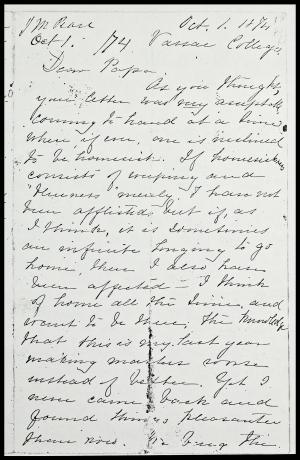 Oct. 1. 1874
Oct 1. /74. Vassar College.
Dear Papa.
As you thought,
your letter was very acceptable
coming to hand at a time
when if ever, one is inclined
to be homesick. If homesickness
consists of weeping and
"blueness" merely I have not
been afflicted, but if, as
I think, it is sometimes
an infinite longing to go
home, then I also have
been affected – I think
of home all the time, and
want to be there, the knowledge
that this is my last year
making matters worse
instead of better. Yet I
never came back and
found things pleasanter
than now. the